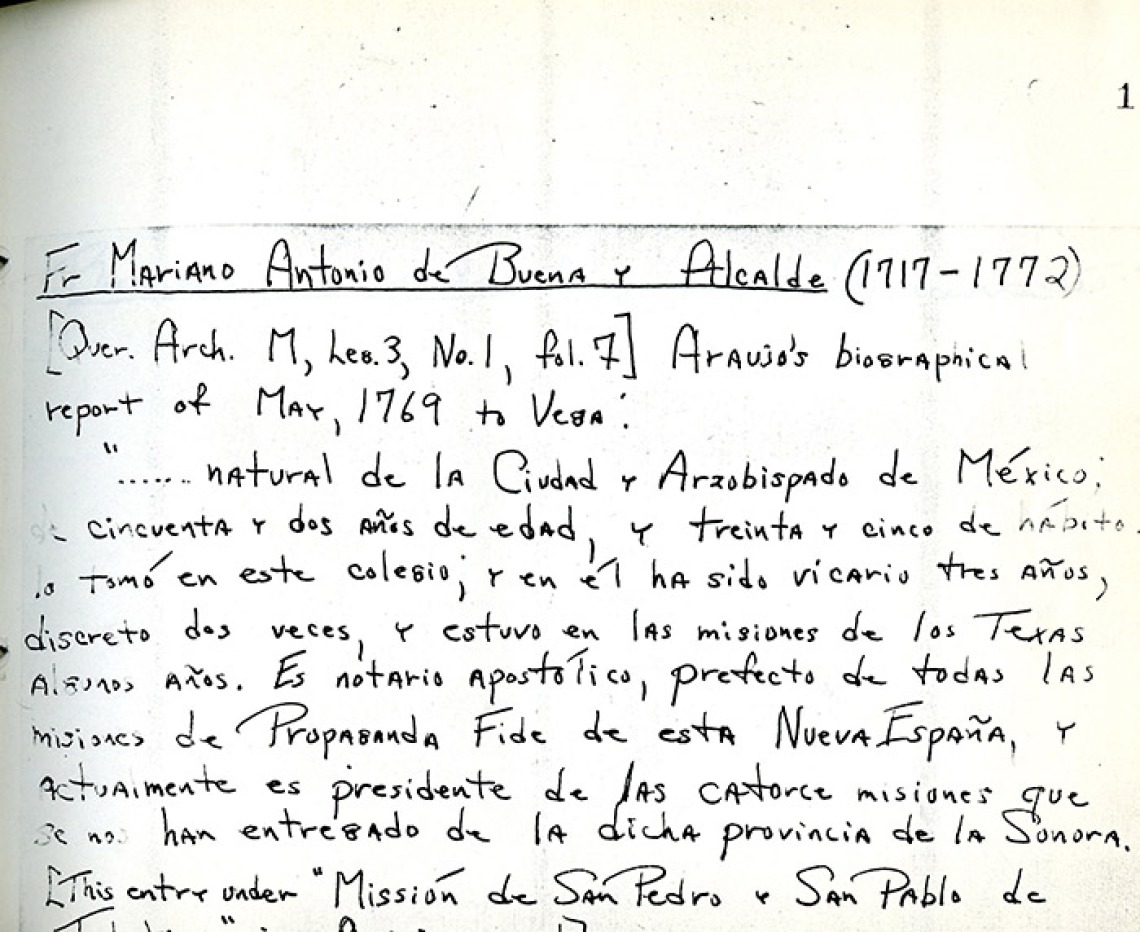 1
Fr Mariano Antonio de Buena y Alcalde (1717-1772)
[Quer. Arch. M, Leg. 3, No. 1, fol. 7] Araujo's biographical
report of May, 1769 to Vega:
"...... natural de la Ciudad y Arzobispado de México;
de cincuenta y dos años de edad, y treinta y cinco de hábito.
lo tomó en este colegio; y en él ha sido vicario tres años,
discreto dos veces, y estuvo en las misiones de los Texas
algunos años. Es notario apostólico, prefecto de todas las
misiones de Propaganda Fide de esta Nueva España, y
actualmente es presidente de las catorce misiones que
se nos han entregado de la dicha provincia de la Sonora.
[This entry under "Missión de San Pedro y San Pablo de